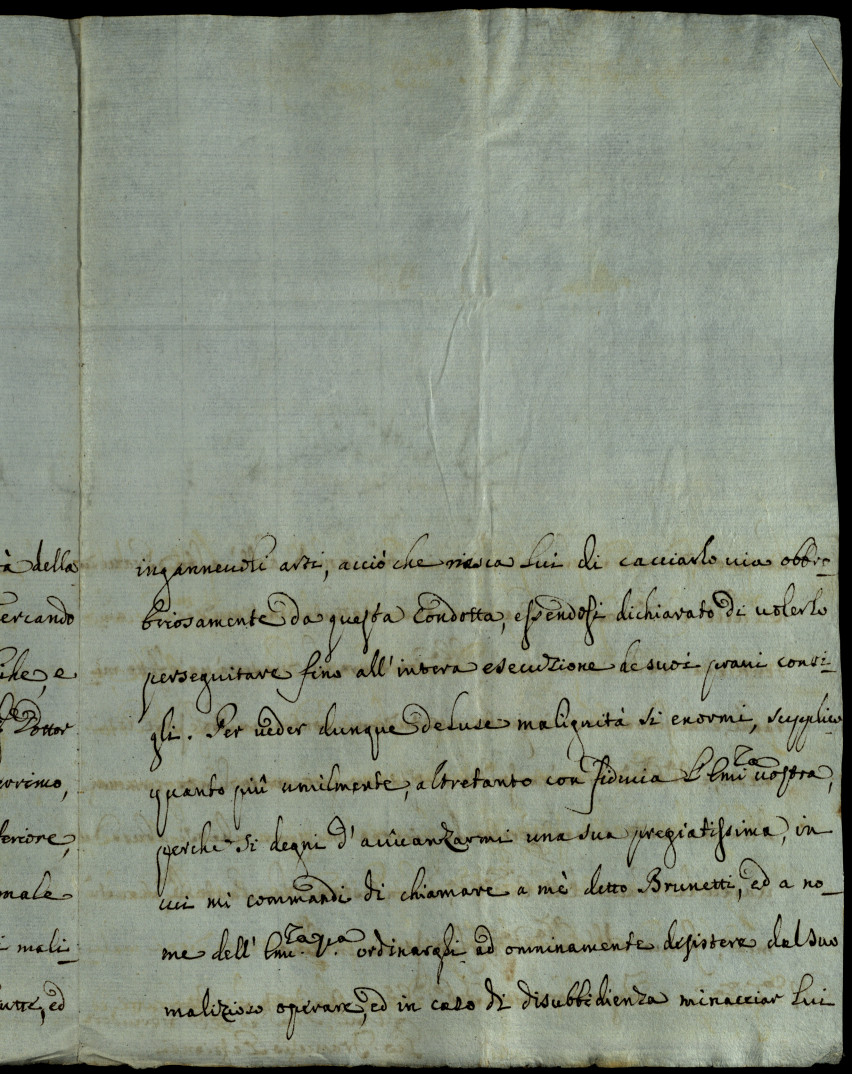 à della
ercando
iche, e
Dottor
orrimo,
feriore,
male
i mali-
utte, ed
ingannevoli arti, acciò che riesca lui di cacciarlo via obbro-
briosamente da questa Condotta, essendosi dichiarato di volerlo
perseguitare fino all'intera esecuzione de suoi pravi consi-
gli. Per veder dunque deluse malignità si enormi, supplico
quanto più umilmente, altretanto con fiducia l'Emi.za vostra,
perche si degni d'avvanzarmi una sua pregiatissima, in
cui mi commandi di chiamare a mè detto Brunetti, ed a no-
me dell'Emi.za v.ra ordinargli ad omninamente desistere dal suo
malizioso operare, ed in caso di disubbidienza minacciar lui